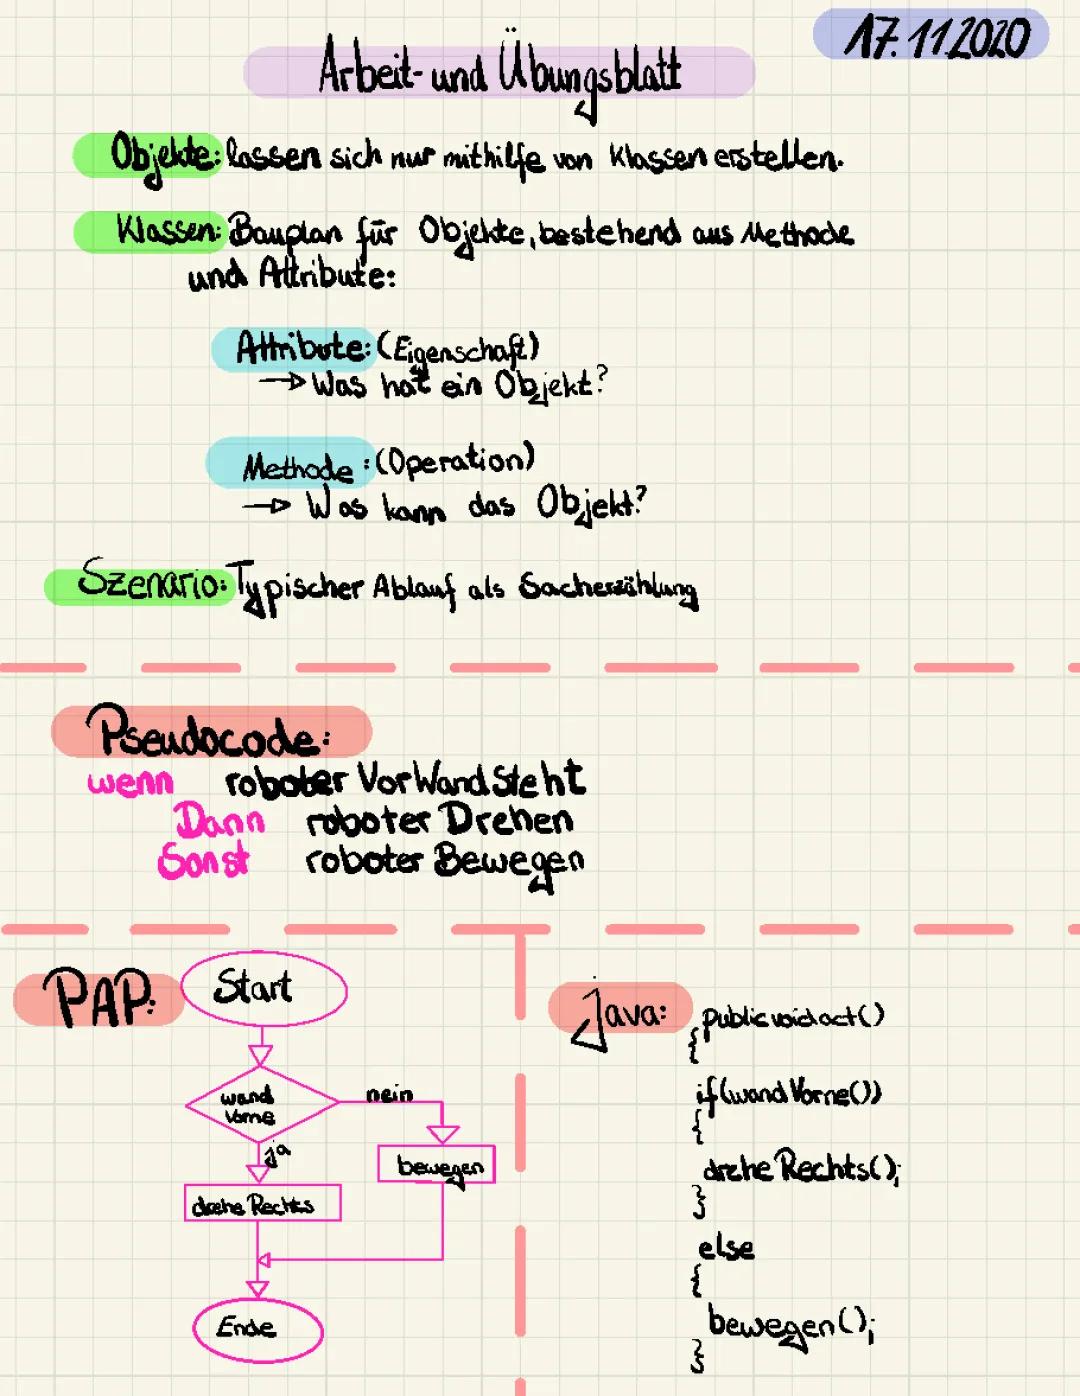 17.11.2020
Arbeit- und Übungsblatt
Objekte: lassen sich nur mithilfe von Klassen erstellen.
Klassen: Bauplan für Objekte, bestehend aus Methode
und Attribute:
Attribute: (Eigenschaft)
→ Was hat ein Objekt?
Methode: (Operation)
→ Was kann das Objekt?
Szenario: Typischer Ablauf als Sacherzählung
Pseudocode:
wenn roboter Vor Wand Steht
Dann roboter Drehen
Sonst roboter Bewegen
PAP:
Start
wand
Vorne
nein
ja
bewegen
drehe Rechts
Ende
Java: public void act()
{
if(wand Vorne())
{
drehe Rechts();
}
else
{
bewegen();
}